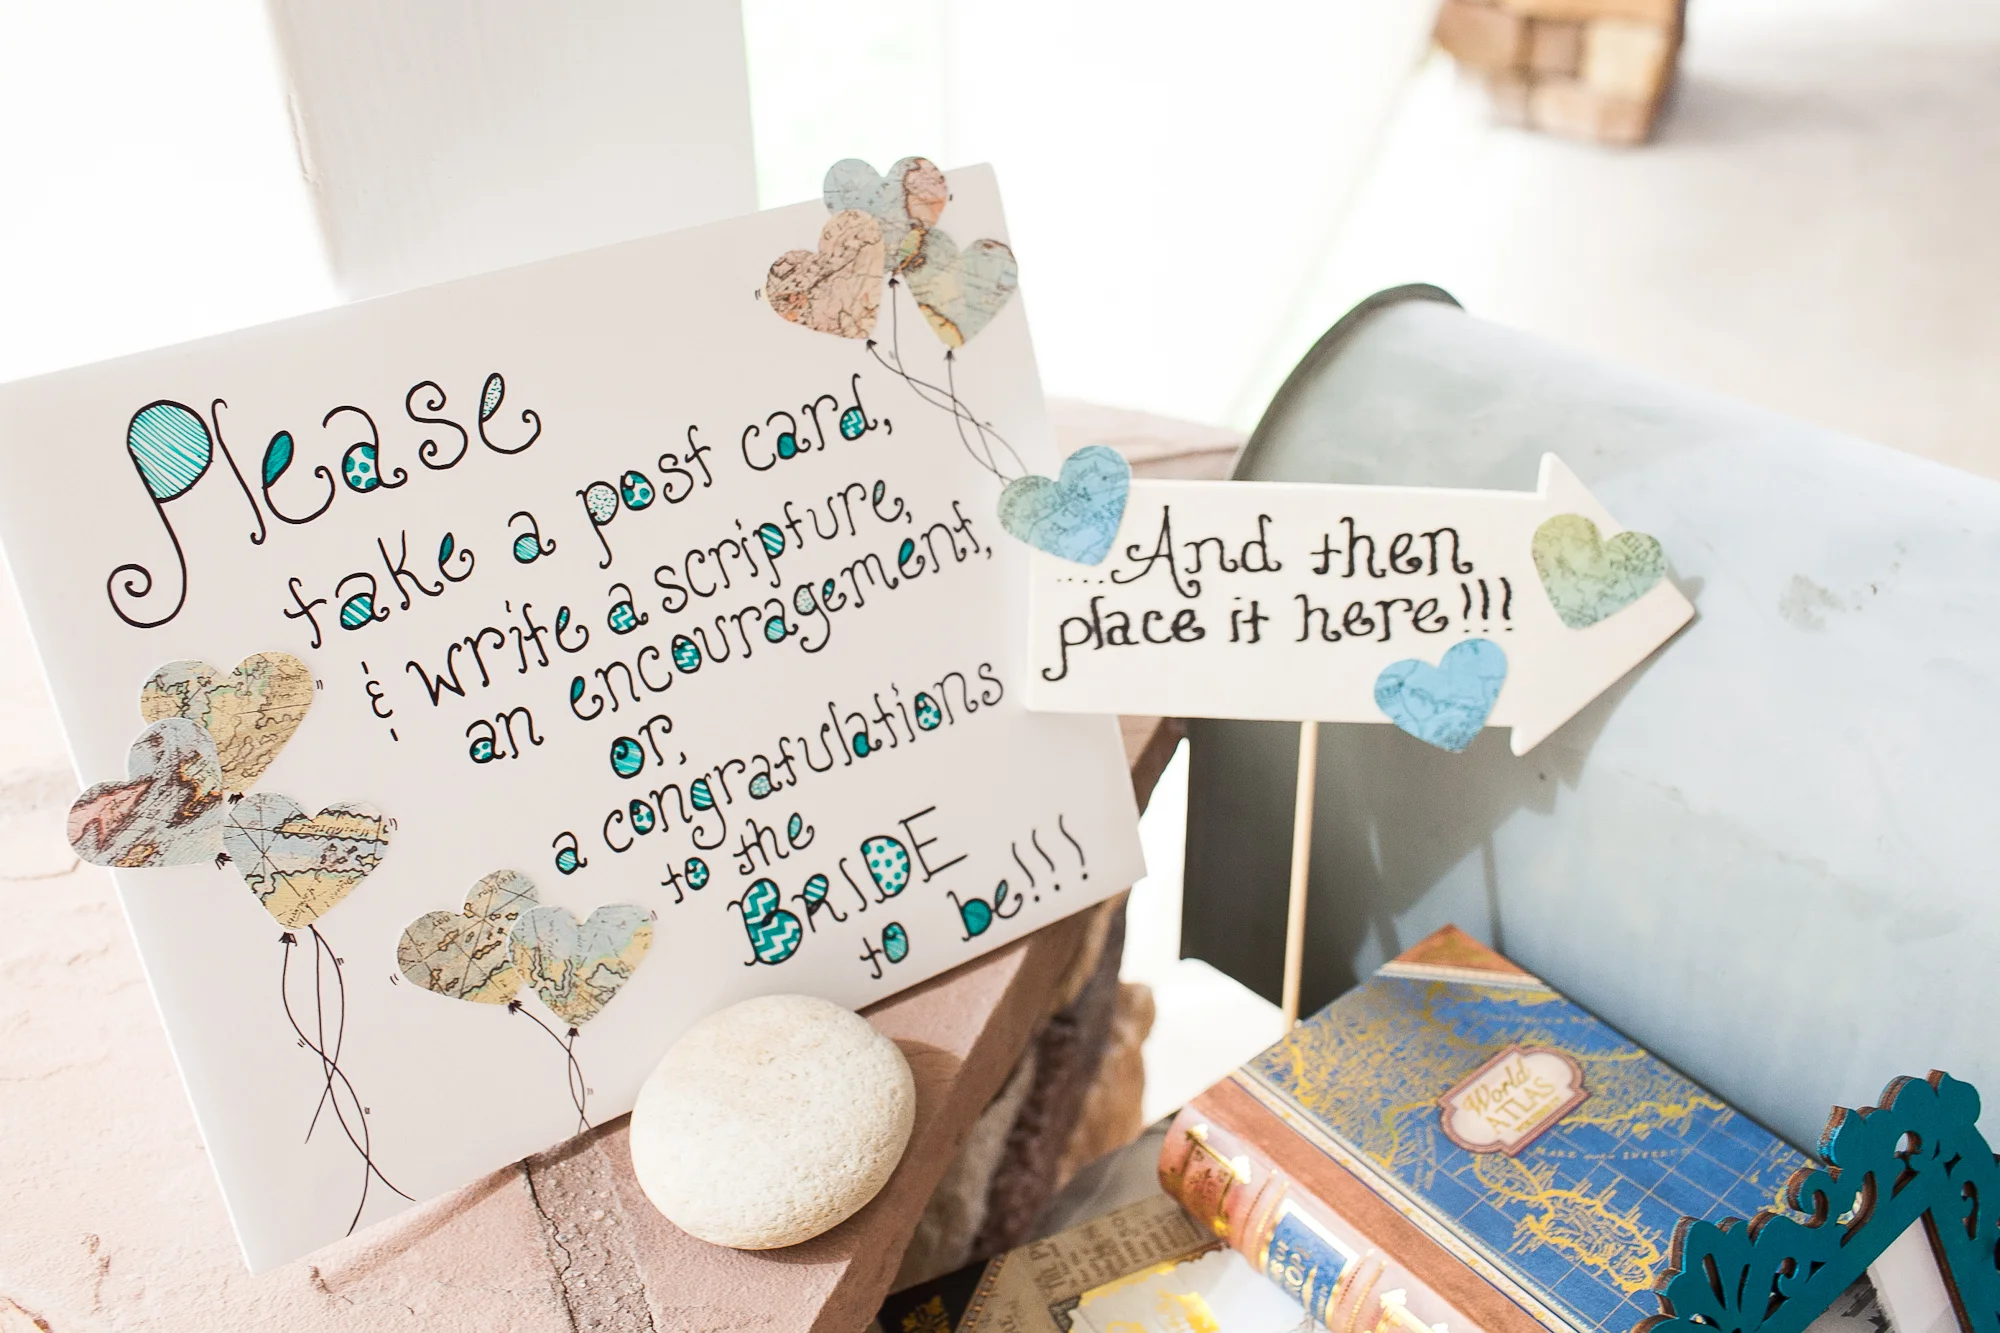 Please
take a post card,
& write a scripture,
an encouragement,
or,
a congratulations
to the
BRIDE
to be!!!
....And then
place it here!!!
World
ATLAS